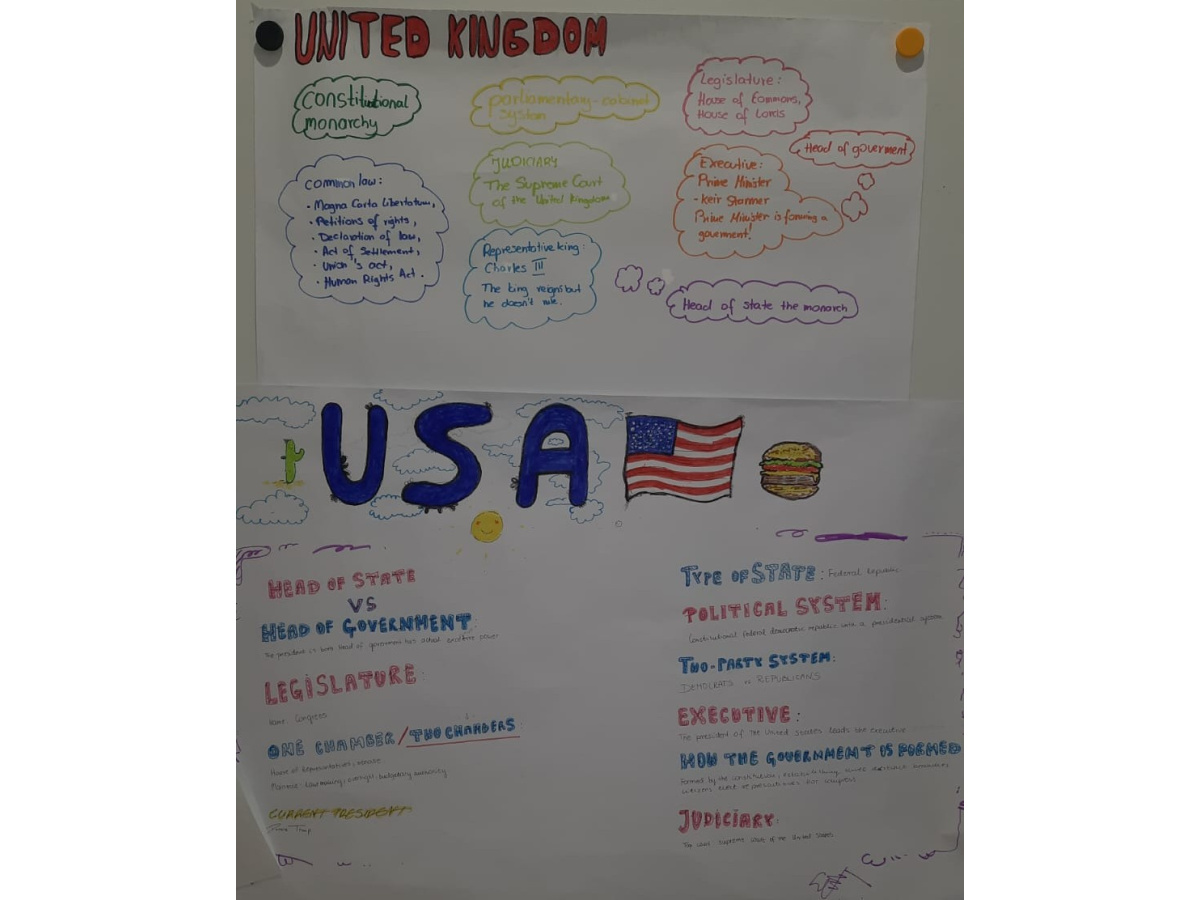 UNITED KINGDOM
constitutional
monarchy
parliamentary-cabinet
system
Legislature:
House of Commons,
House of Lords
Head of goverment
common law:
• Magna Carta Libertatum,
• Petitions of rights,
• Declaration of law,
• Act of Settlement,
• Union's act,
• Human Rights Act.
JUDICIARY
The Supreme Court
of the United Kingdom
Executive:
Prime Minister
- Keir Starmer
Prime Minister is forming a
goverment!
Representative king:
Charles III
The king reigns but
he doesn't rule.
Head of state the monarch
USA
HEAD OF STATE
VS
HEAD OF GOVERNMENT:
The president is both head of government has actual executive power
LEGISLATURE:
Congress
ONE CHAMBER / TWO CHAMBERS:
House of Representatives, senate
Purpose: lawmaking, oversight, budgetary authority
CURRENT PRESIDENT
TYPE OF STATE: Federal Republic
POLITICAL SYSTEM:
Constitutional federal democratic republic with a presidential system
TWO-PARTY SYSTEM:
DEMOCRATS vs REPUBLICANS
EXECUTIVE:
The president of the United States leads the executive
HOW THE GOVERNMENT IS FORMED
Formed by the constitution,
citizens elect representatives
JUDICIARY:
supreme court of the United States